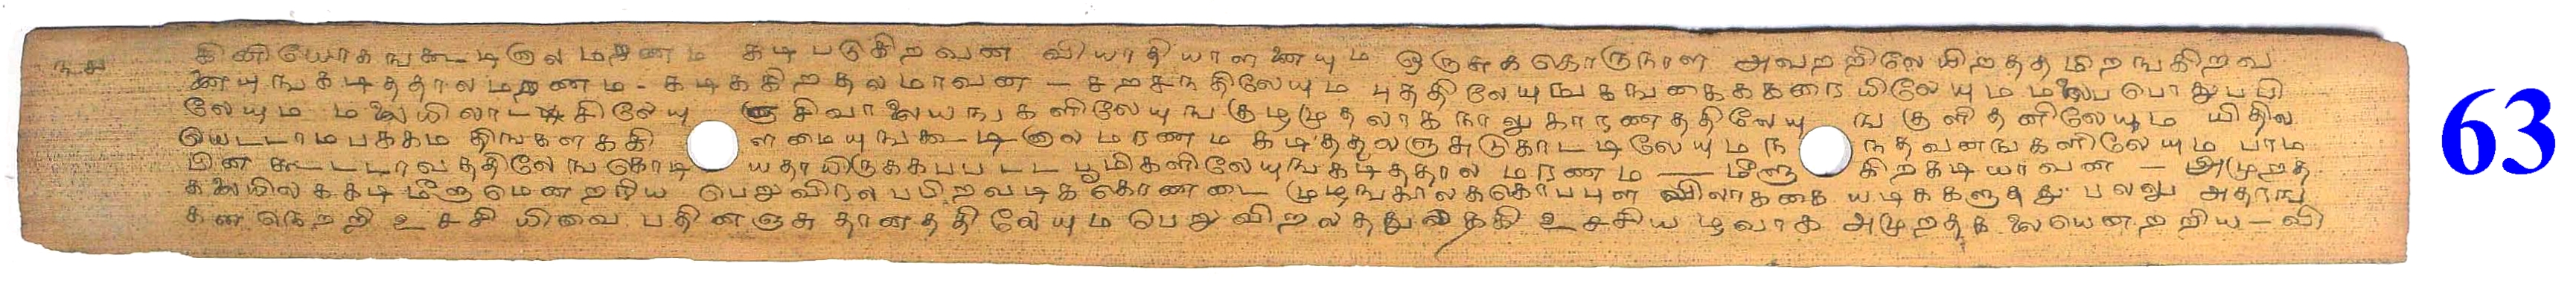 கினியோகஙகூடினால மரணம கடி படுகிறவன வியாதியாளனையும ஒருசுககொருநாள அவறறிலே யிறதத மிறஙகிறவ
னையுங கடிததால மரணம - கடிககிறதலமாவன - சறசநதிலேயும புததிலேயுங கஙகைககரையிலேயும மலைப பொதுபபி
லேயும மலையிலா கிலேயு ஞ சிவாலையஙகளிலேயுங குழமுதலாக நாலு காரணததிலேயு ங குளிதனிலேயும யிதில
யெட்டாமபககம திஙகளககி ளமையுஙகூடினால மரணம கடிததலஞ சுடுகாடடிலேயும ந நதவனஙகளிலேயும பாம
பின கூடடாவததிலேஙகொடி யதாயிருககபபடட பூமிகளிலேயுங கடிததால மரணம — மீளு கிறகடியாவன — அமுறத
கலையில ககடி மீளுமெனறறிய பெருவிரல பபிறவடிக கொணடை முழஙகாலககொபபுள விலாககை யடிககளுதது பலலு அதரங
கன நெறறி உசசி யிவை பதினஞசு தானததிலேயும பெருவிறலதது ககி உசசிய ழவாக அமுறதக லையெனறறிய - வி
63